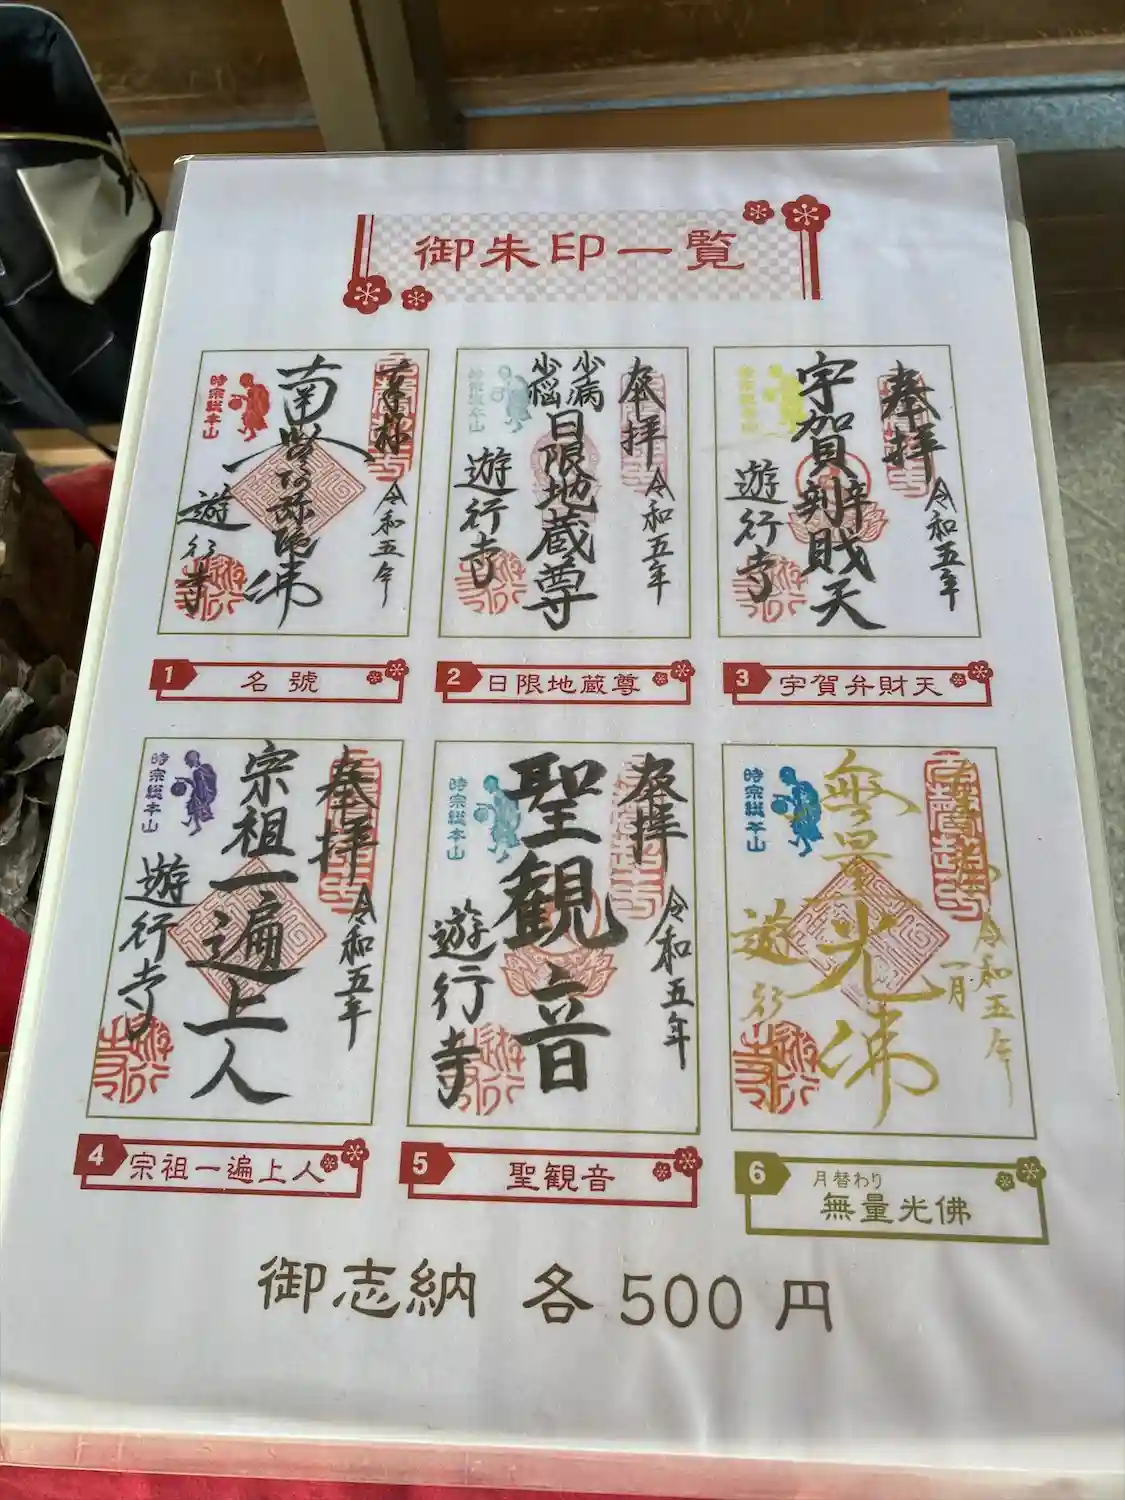 御朱印一覧
奉拝
令和五年
南無阿弥陀佛
時宗総本山
遊行寺
1 名號
奉拝
令和五年
少病
少悩
日限地蔵尊
時宗総本山
遊行寺
2 日限地蔵尊
奉拝
令和五年
宇賀辨財天
時宗総本山
遊行寺
3 宇賀弁財天
奉拝
令和五年
宗祖一遍上人
時宗総本山
遊行寺
4 宗祖一遍上人
奉拝
令和五年
聖観音
時宗総本山
遊行寺
5 聖観音
令和五年
一月
無量光佛
時宗総本山
遊行
6 月替わり
無量光佛
御志納 各500円